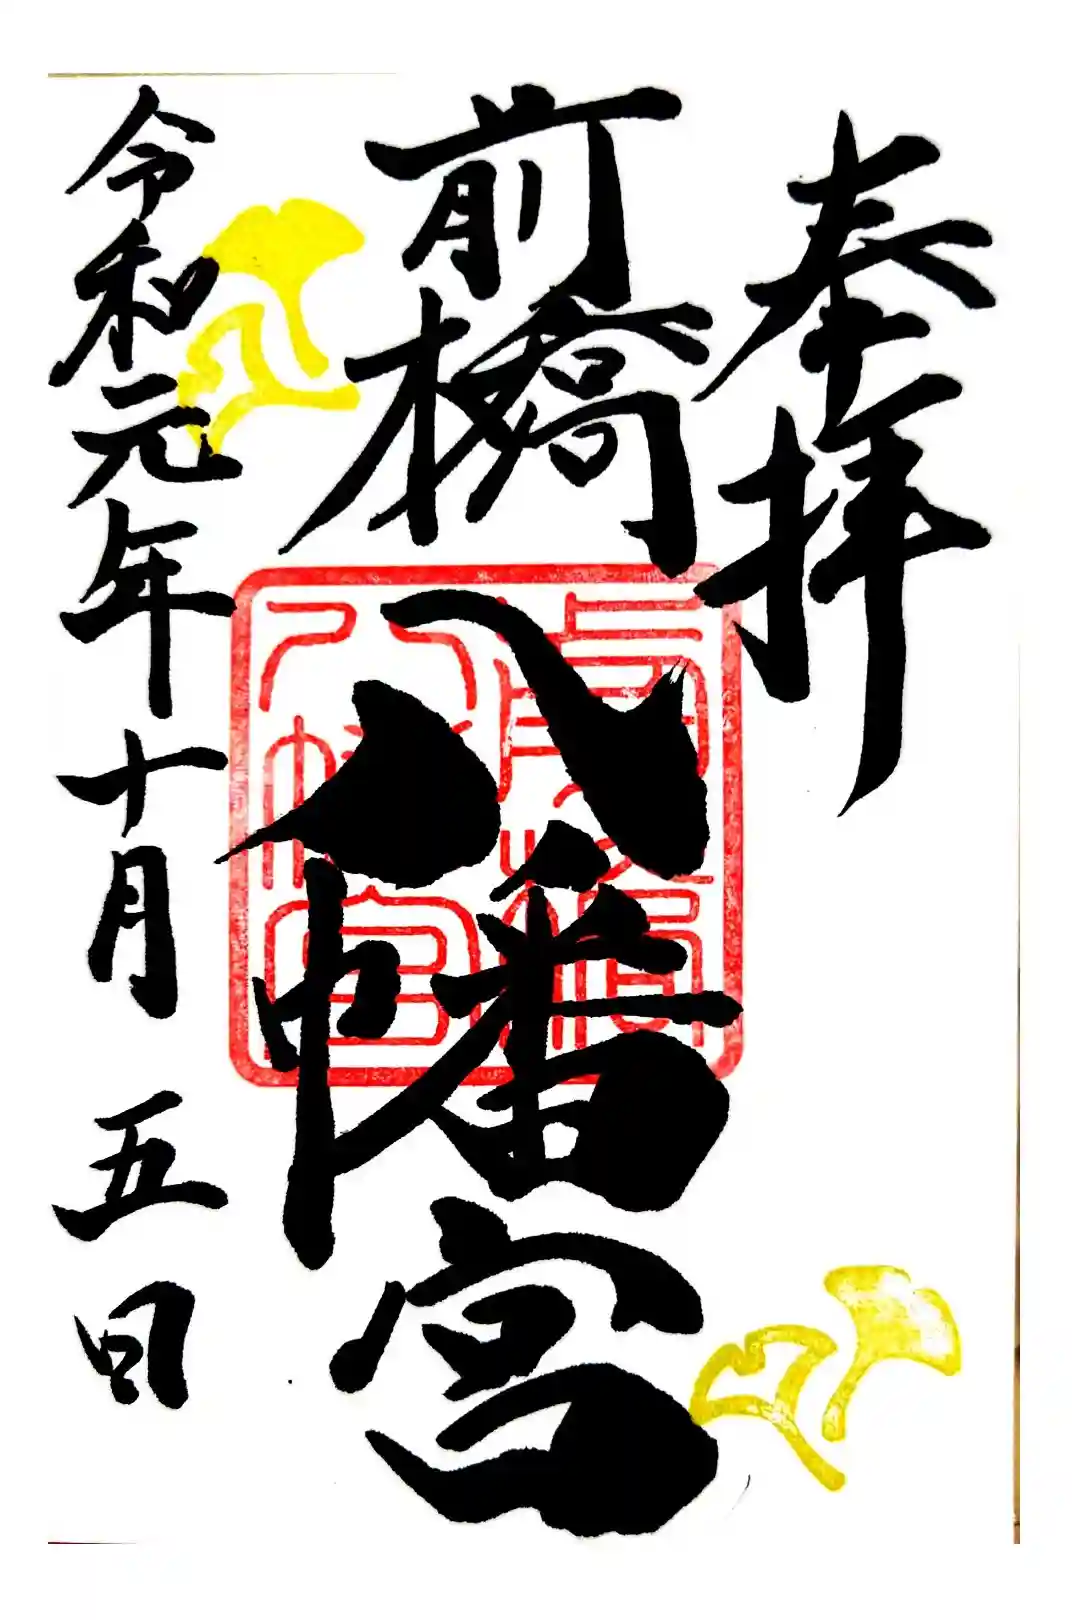 奉拝
前橋八幡宮
令和元年十月五日
前橋
八幡宮